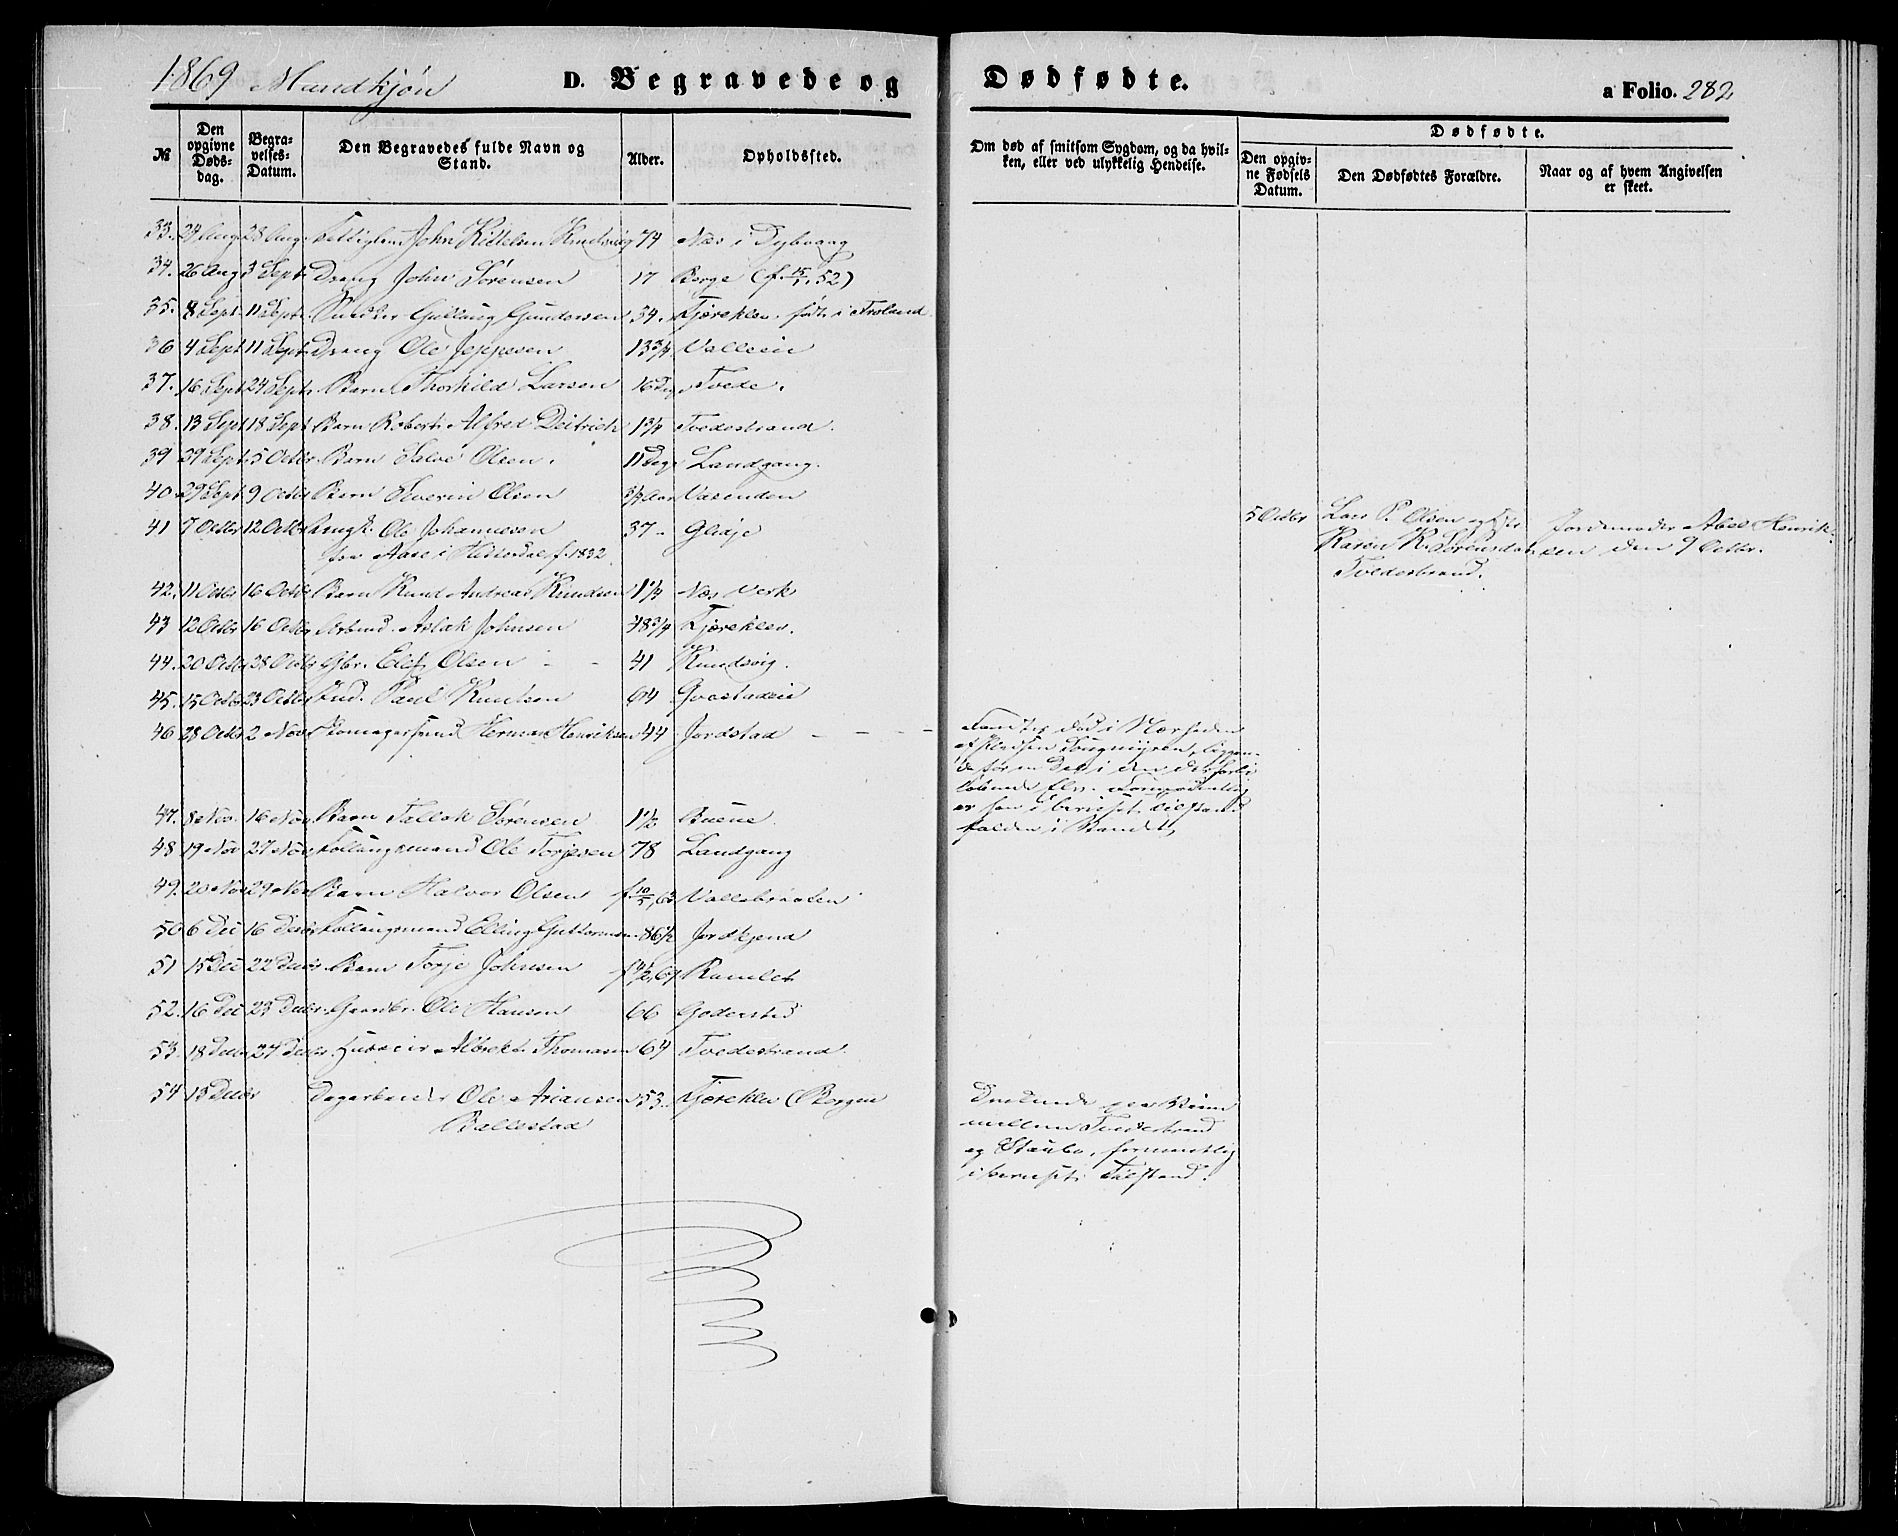 1869 Mandkjøn D. Begravede og Dødfødte. a Folio. 282
№ Den opgivne Døds-dag. Begra-velses-Datum. Den Begravedes fulde Navn og Stand. Alder. Opholdssted. Om død af smitsom Sygdom, og da hvil-ken, eller ved ulykkelig Hendelse. Dødfødte. Den opgiv-ne Fødsels Datum. Den Dødfødtes Forældre. Naar og af hvem Angivelsen er skeet.
33. 24 Aug 28 Aug John Kittelsen 74 Næs i Dybvaag
34. 26 Aug 3 Sept Dreng John Sørensen 17 Berge (f. 15/1 52)
35. 8 Sept 11 Sept. Gullaug Gundersen 54. Fjæreklev. født i Froland
36 4 Sept 11 Sept. Dreng Ole Jeppesen 13 3/4 Valleein
37. 16 Sept 24 Sept. Barn Thorkild Larsen 16 Dage Tvede.
38. 13 Sept 18 Sept Barn Robert Alfred Deitrich 1 3/4 Tvedestrand.
39 29 Sept. 5 Octbr. Barn Salve Olsen. 11 Dage Landgang.
40. 29 Sept 9 Octbr Barn Severin Olsen 3/4 Aar Vasenden
41 7 Octbr 12 Octbr Ungk. Ole Johannesen 37 Gliddje
fra Aase i Hitterdal f. 1832
5 Octbr Lars P. Olsen og Karen K. Sørensdatter Tvedestrand. Jordemoder Abel Henriksen den 9 Octbr.
42. 11 Octbr 16 Octbr Barn Knud Andreas Knudsen 1 1/4 Næs Verk
43 12 Octbr 16 Octbr Aslak Johnsen 78 3/4 Fjæreklev.
44. 20 Octbr 28 Octbr Gbr. Elef Olsen 41 Knudsvig.
45. 15 Octbr 23 Octbr Ind. Paul Knutsen 64 Goderstadeie
46 28 Octbr 2 Nov Skomagersvend Herman Henriksen 44 Jordstad - - - - Fandtes død i Nærheden
af Pladsen liggen-
de i den der forbi
løbende Elv. Formodentlig
er han i beruset Tilstand
falden i Vandet.
47. 8 Nov. 16 Nov. Barn Tallak Sørensen 1 1/2 Buene.
48 19 Nov 27 Nov. Follaugsmand Ole Torjesen 78 Landgang
49. 20 Nov 29 Nov Barn Halvor Olsen f 10/5 63 Vallebraaten
50 6 Dec 16 Decbr Follaugsmand Elling Guttormsen 86 1/2 Jordkjend
51 15 Dec 22 Decbr. Barn Torje Johnsen 67 Ramlet
52. 16 Dec 23 Decbr. Gaardbr. Ole Hansen 66 Goderstad
53. 18 Decbr 24 Decbr. Huuseier Albrekt Thomasen 64 Tvedestrand.
54 13 Decbr Dagarbeider Ole Ariansen 53. Fjæreklev (Bergen
Ballestad
Druknede paa Veien
mellem Tvedestrand
og Staubo, formentlig
i beruset Tilstand.